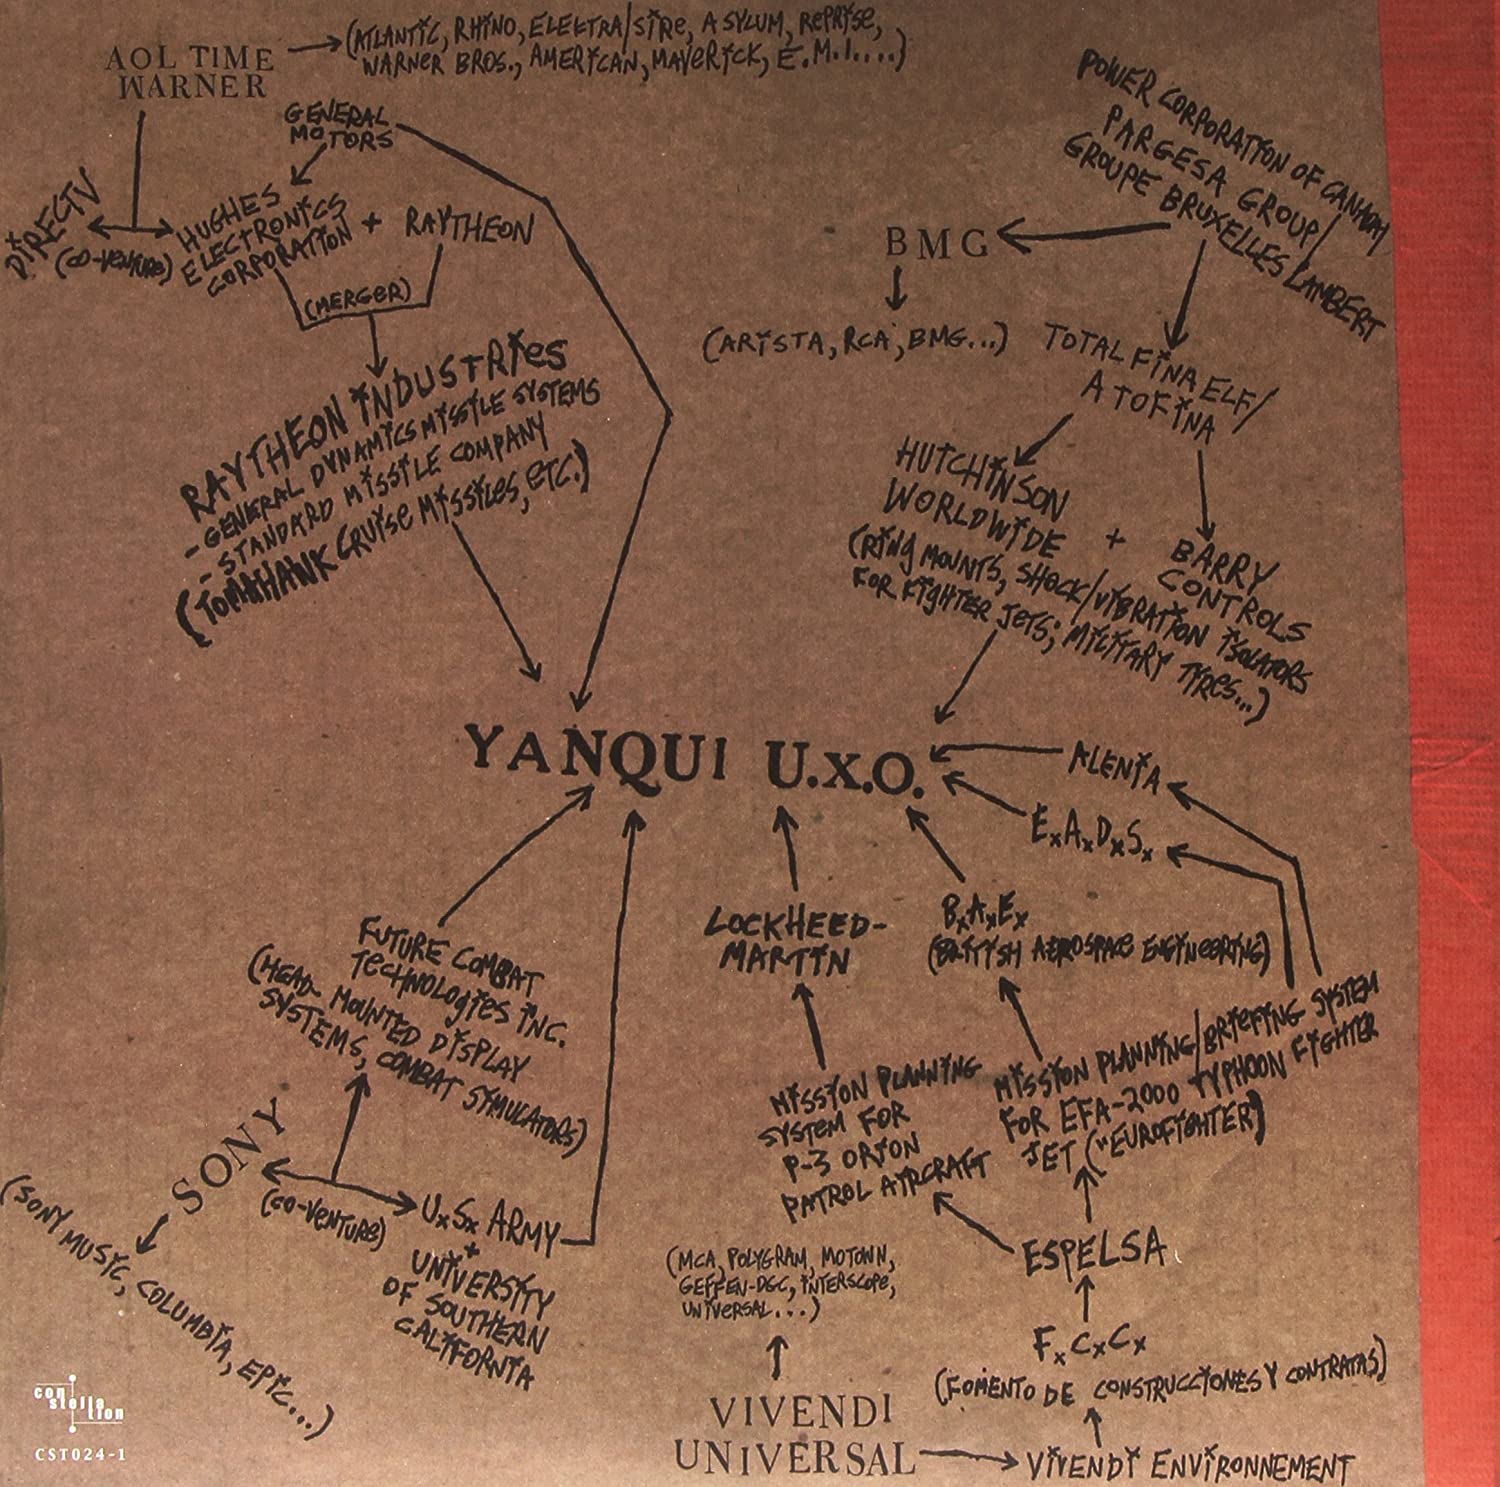 AOL TIME
WARNER
(ATLANTIC, RHINO, ELEKTRA/SIRE, ASYLUM, REPRISE,
WARNER BROS., AMERICAN, MAVERICK, E.M.I....)
GENERAL
MOTORS
DIRECTV
(CO-VENTURE)
HUGHES
ELECTRONICS
CORPORATION
+
RAYTHEON
(MERGER)
RAYTHEON INDUSTRIES
- GENERAL DYNAMICS MISSILE SYSTEMS
- STANDARD MISSILE COMPANY
(TOMAHAWK CRUISE MISSILES, ETC.)
POWER CORPORATION OF CANADA/
PARGESA GROUP/
GROUPE BRUXELLES LAMBERT
BMG
(ARISTA, RCA, BMG...)
TOTAL FINA ELF/
ATOFINA
HUTCHINSON
WORLDWIDE
+
BARRY
CONTROLS
(RING MOUNTS, SHOCK/VIBRATION ISOLATORS
FOR FIGHTER JETS; MILITARY TYRES...)
YANQUI U.X.O.
ALENIA
ExAxDxSx
LOCKHEED-
MARTIN
BxAxEx
(BRITISH AEROSPACE ENGINEERING)
FUTURE COMBAT
TECHNOLOGIES INC.
(HEAD-MOUNTED DISPLAY
SYSTEMS, COMBAT SIMULATORS)
MISSION PLANNING
SYSTEM FOR
P-3 ORION
PATROL AIRCRAFT
MISSION PLANNING/BRIEFING SYSTEM
FOR EFA-2000 TYPHOON FIGHTER
JET ("EUROFIGHTER)
SONY
(CO-VENTURE)
UxSx ARMY
+
UNIVERSITY
OF SOUTHERN
CALIFORNIA
(SONY MUSIC, COLUMBIA, EPIC...)
ESPELSA
(MCA, POLYGRAM, MOTOWN,
GEFFEN-DGC, INTERSCOPE,
UNIVERSAL...)
FxCxCx
(FOMENTO DE CONSTRUCCIONES Y CONTRATAS)
VIVENDI
UNIVERSAL
VIVENDI ENVIRONNEMENT
constellation
CST024-1